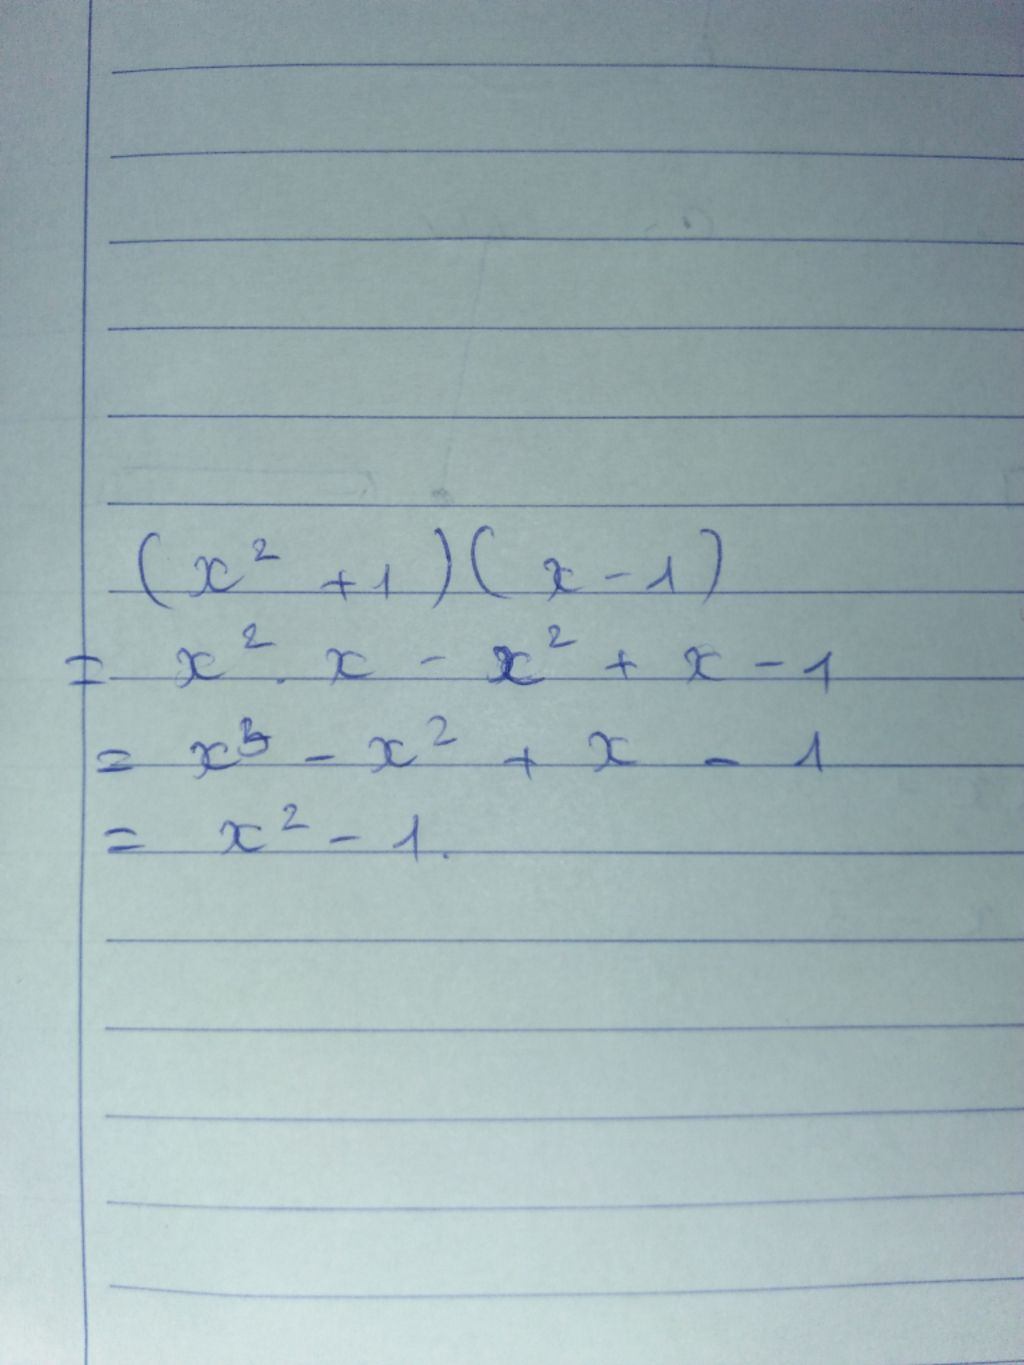 (x² + 1)(x - 1)
= x² . x - x² + x - 1
= x³ - x² + x - 1
= x² - 1.